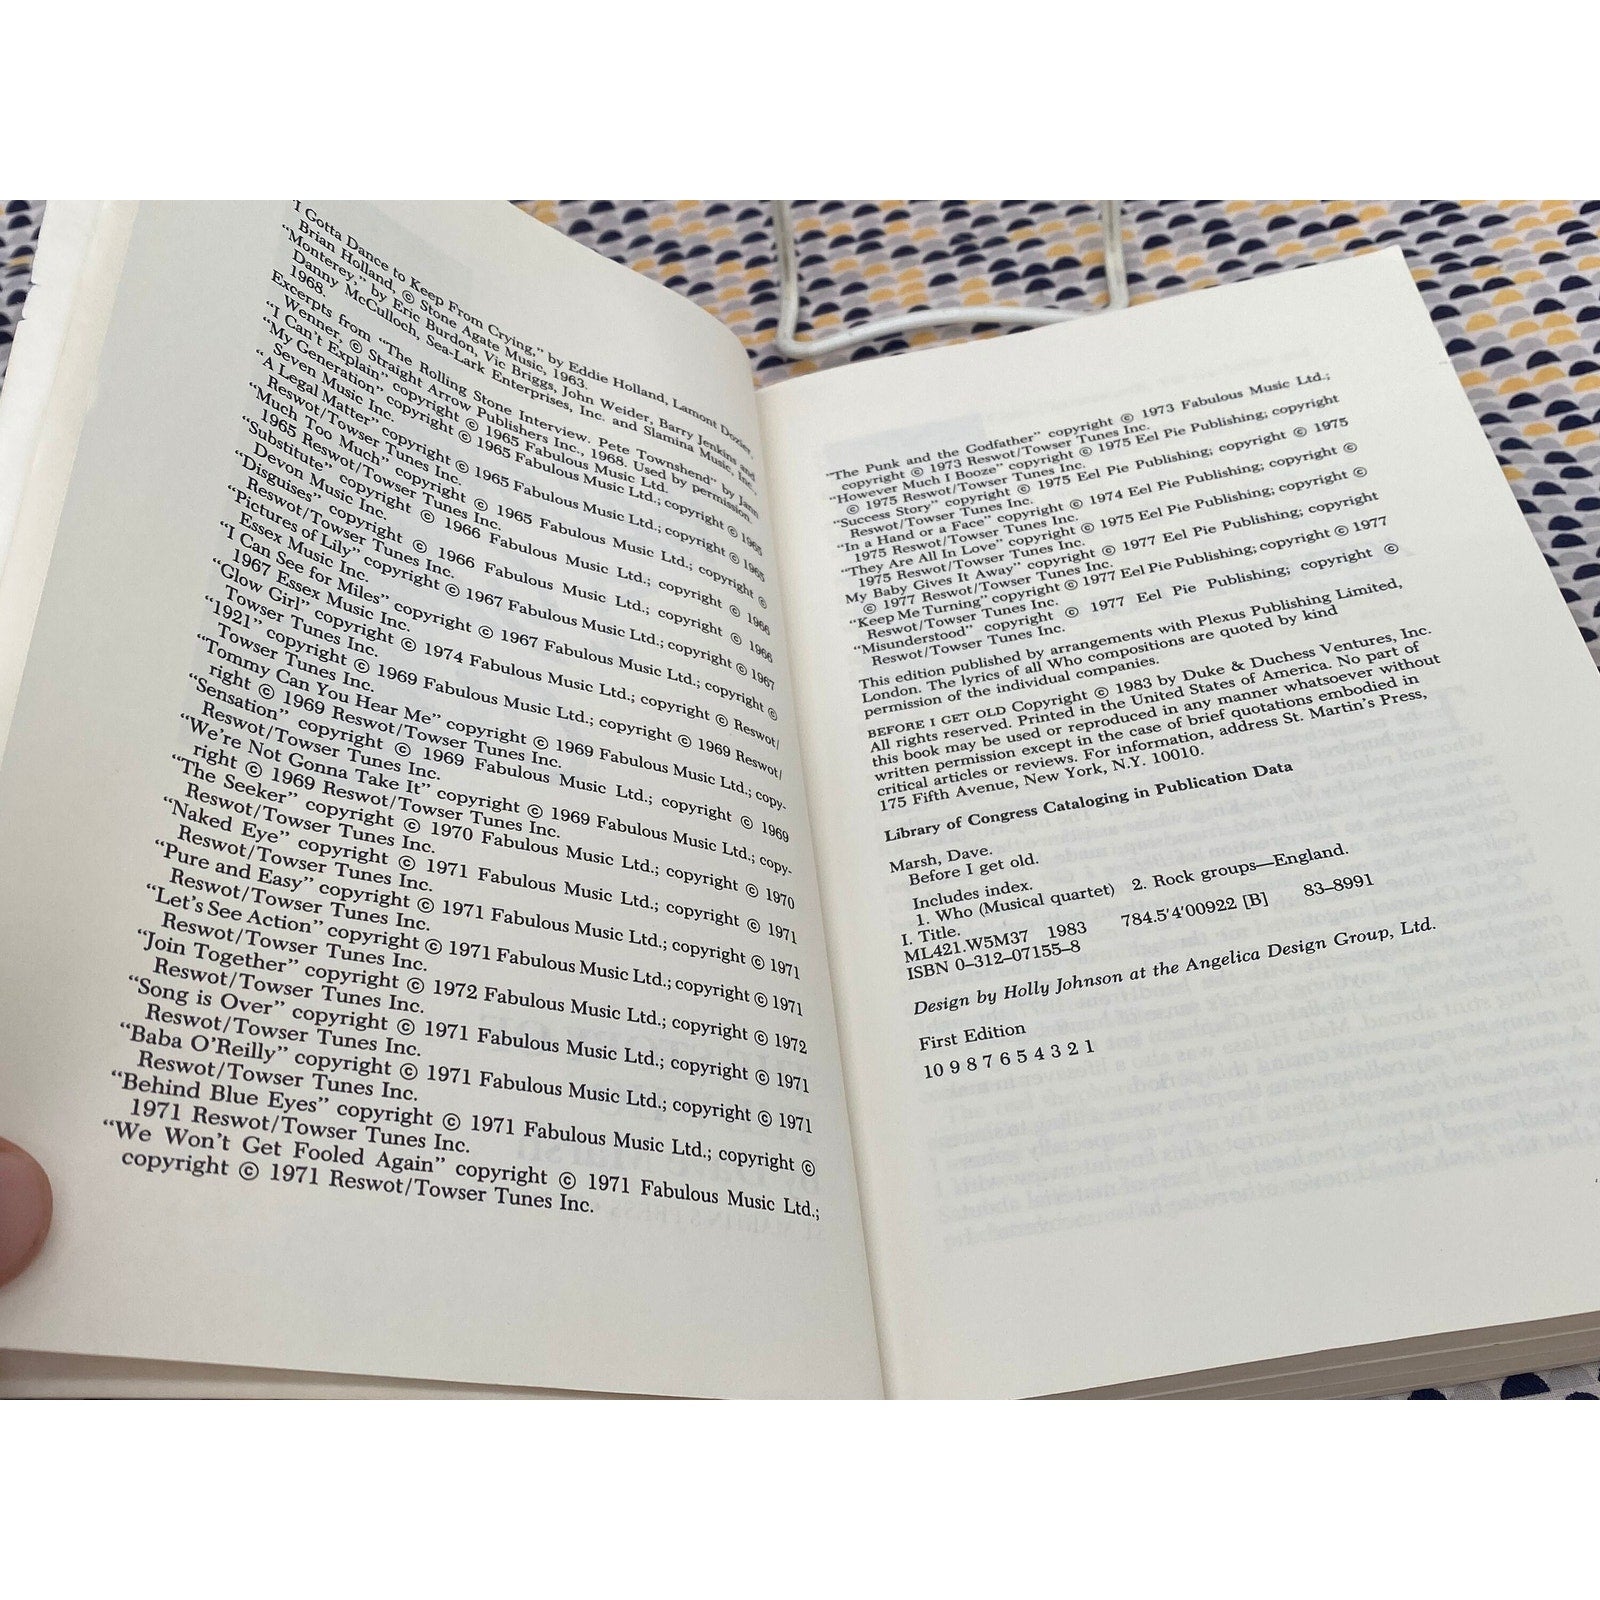 "I Gotta Dance to Keep From Crying," by Eddie Holland, Lamont Dozier,
Brian Holland, © Stone Agate Music, 1963.
"Monterey," by Eric Burdon, Vic Briggs, John Weider, Barry Jenkins and
Danny McCulloch, Sea-Lark Enterprises, Inc. and Slamina Music, Inc.,
1968.
Excerpts from "The Rolling Stone Interview. Pete Townshend" by Jann
Wenner, © Straight Arrow Publishers Inc., 1968. Used by permission.
"I Can't Explain" copyright © 1965 Fabulous Music Ltd.
"My Generation" copyright © 1965 Fabulous Music Ltd.; copyright © 1965
Seven Music Inc.
"A Legal Matter" copyright © 1965 Fabulous Music Ltd.; copyright © 1965
Reswot/Towser Tunes Inc.
"Much Too Much" copyright © 1965 Fabulous Music Ltd.; copyright ©
1965 Reswot/Towser Tunes Inc.
"Substitute" copyright © 1966 Fabulous Music Ltd.; copyright © 1966
Devon Music Inc.
"Disguises" copyright © 1966 Fabulous Music Ltd.; copyright © 1966
Reswot/Towser Tunes Inc.
"Pictures of Lily" copyright © 1967 Fabulous Music Ltd.; copyright © 1967
Essex Music Inc.
"I Can See for Miles" copyright © 1967 Fabulous Music Ltd.; copyright ©
1967 Essex Music Inc.
"Glow Girl" copyright © 1974 Fabulous Music Ltd.; copyright © Reswot/
Towser Tunes Inc.
"1921" copyright © 1969 Fabulous Music Ltd.; copyright © 1969 Reswot/
Towser Tunes Inc.
"Tommy Can You Hear Me" copyright © 1969 Fabulous Music Ltd.; copy-
right © 1969 Reswot/Towser Tunes Inc.
"Sensation" copyright © 1969 Fabulous Music Ltd.; copyright © 1969
Reswot/Towser Tunes Inc.
"We're Not Gonna Take It" copyright © 1969 Fabulous Music Ltd.; copy-
right © 1969 Reswot/Towser Tunes Inc.
"The Seeker" copyright © 1970 Fabulous Music Ltd.; copyright © 1970
Reswot/Towser Tunes Inc.
"Naked Eye" copyright © 1971 Fabulous Music Ltd.; copyright © 1971
Reswot/Towser Tunes Inc.
"Pure and Easy" copyright © 1971 Fabulous Music Ltd.; copyright © 1971
Reswot/Towser Tunes Inc.
"Let's See Action" copyright © 1971 Fabulous Music Ltd.; copyright © 1971
Reswot/Towser Tunes Inc.
"Join Together" copyright © 1972 Fabulous Music Ltd.; copyright © 1972
Reswot/Towser Tunes Inc.
"Song is Over" copyright © 1971 Fabulous Music Ltd.; copyright © 1971
Reswot/Towser Tunes Inc.
"Baba O'Reilly" copyright © 1971 Fabulous Music Ltd.; copyright © 1971
Reswot/Towser Tunes Inc.
"Behind Blue Eyes" copyright © 1971 Fabulous Music Ltd.; copyright ©
1971 Reswot/Towser Tunes Inc.
"We Won't Get Fooled Again" copyright © 1971 Fabulous Music Ltd.;
copyright © 1971 Reswot/Towser Tunes Inc.
"The Punk and the Godfather" copyright © 1973 Fabulous Music Ltd.;
copyright © 1973 Reswot/Towser Tunes Inc.
"However Much I Booze" copyright © 1975 Eel Pie Publishing; copyright
© 1975 Reswot/Towser Tunes Inc.
"Success Story" copyright © 1975 Eel Pie Publishing; copyright © 1975
Reswot/Towser Tunes Inc.
"In a Hand or a Face" copyright © 1974 Eel Pie Publishing; copyright ©
1975 Reswot/Towser Tunes Inc.
"They Are All In Love" copyright © 1975 Eel Pie Publishing; copyright ©
1975 Reswot/Towser Tunes Inc.
My Baby Gives It Away" copyright © 1977 Eel Pie Publishing; copyright
© 1977 Reswot/Towser Tunes Inc.
"Keep Me Turning" copyright © 1977 Eel Pie Publishing; copyright © 1977
Reswot/Towser Tunes Inc.
"Misunderstood" copyright © 1977 Eel Pie Publishing; copyright ©
Reswot/Towser Tunes Inc.
This edition published by arrangements with Plexus Publishing Limited,
London. The lyrics of all Who compositions are quoted by kind
permission of the individual companies.
BEFORE I GET OLD Copyright © 1983 by Duke & Duchess Ventures, Inc.
All rights reserved. Printed in the United States of America. No part of
this book may be used or reproduced in any manner whatsoever without
written permission except in the case of brief quotations embodied in
critical articles or reviews. For information, address St. Martin's Press,
175 Fifth Avenue, New York, N.Y. 10010.
Library of Congress Cataloging in Publication Data
Marsh, Dave.
Before I get old.
Includes index.
1. Who (Musical quartet) 2. Rock groups—England.
I. Title.
ML421.W5M37 1983 784.5'4'00922 [B] 83–8991
ISBN 0–312–07155–8
Design by Holly Johnson at the Angelica Design Group, Ltd.
First Edition
10 9 8 7 6 5 4 3 2 1